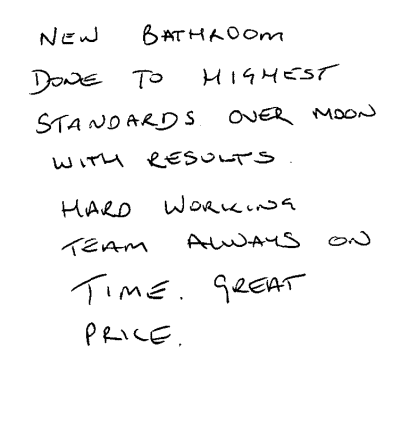 NEW BATHROOM
DONE TO HIGHEST
STANDARDS. OVER MOON
WITH RESULTS.
HARD WORKING
TEAM ALWAYS ON
TIME. GREAT
PRICE.